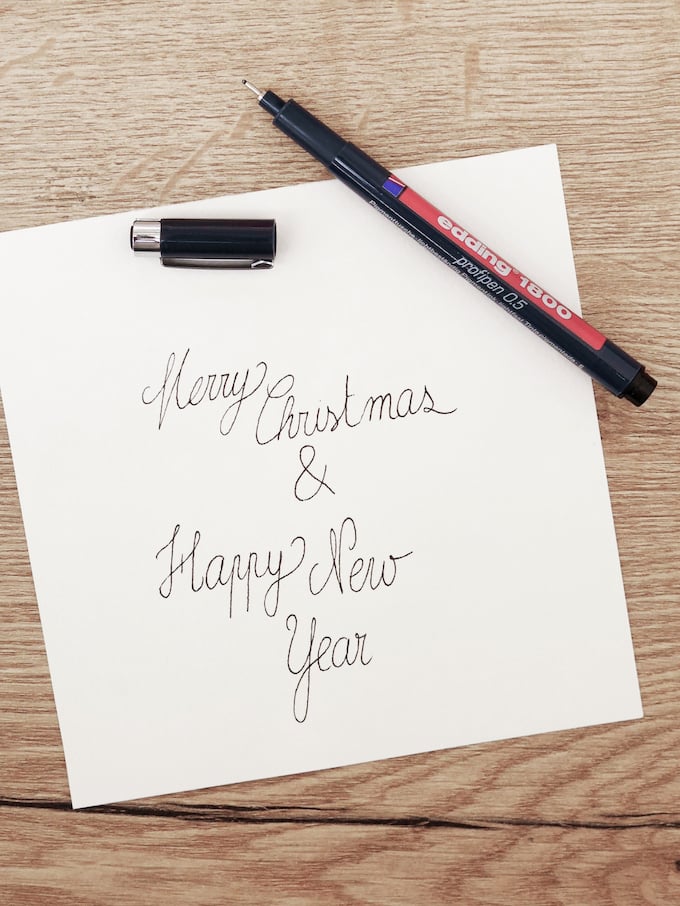 edding 1800
profipen 0.5
Merry Christmas
&
Happy New
Year